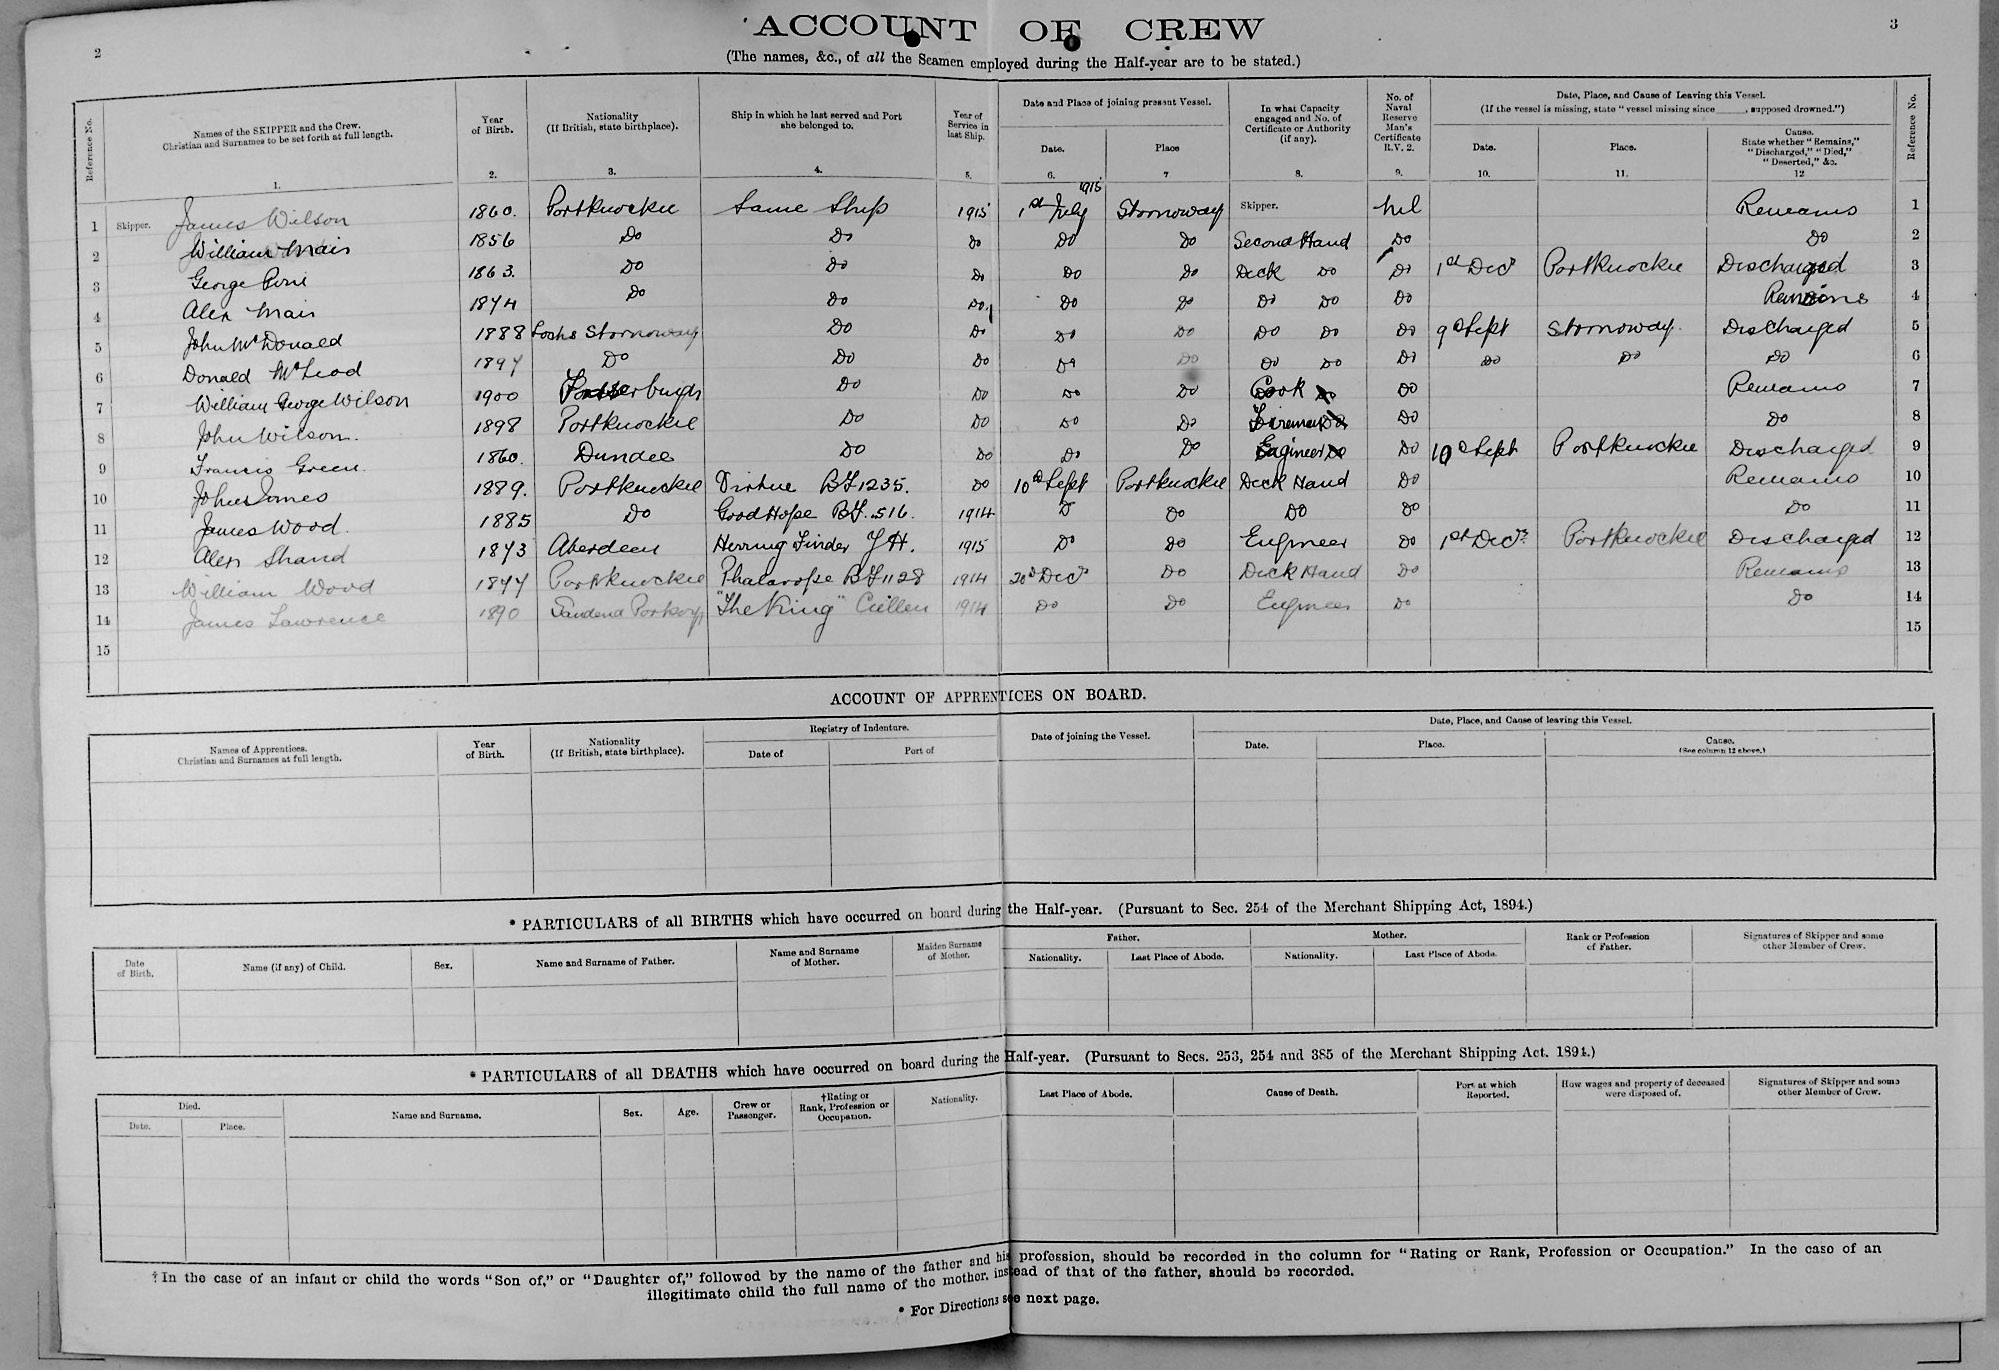 2
ACCOUNT OF CREW
3
(The names, &c., of all the Seamen employed during the Half-year are to be stated.)
Reference No.
Names of the SKIPPER and the Crew.
Christian and Surnames to be set forth at full length.
1.
Year
of Birth.
2.
Nationality
(If British, state birthplace).
3.
Ship in which he last served and Port
she belonged to.
4.
Year of
Service in
last Ship.
5.
Date and Place of joining present Vessel.
Date.
6.
Place
7
In what Capacity
engaged and No. of
Certificate or Authority
(if any).
8.
No. of
Naval
Reserve
Man's
Certificate
R.V. 2.
9.
Date, Place, and Cause of Leaving this Vessel.
(If the vessel is missing, state "vessel missing since_____, supposed drowned.")
Date.
10.
Place.
11.
Cause.
State whether "Remains,"
"Discharged," "Died,"
"Deserted," &c.
12
Reference No.
1 Skipper. James Wilson 1860. Portknockie Same Ship 1915 1st July 1915 Stornoway Skipper. Nil Remains 1
2 William Mair 1856 Do Do Do Do Do Second Hand Do Do 2
3 George Pirie 1863. Do Do Do Do Do Deck Do Do 1st Decr Portknockie Discharged 3
4 Alex Mair 1874 Do Do Do, Do Do Do Do Do Remains 4
5 John McDonald 1888 Lochs Stornoway Do Do Do Do Do Do Do 9th Sept Stornoway. Discharged 5
6 Donald McLeod 1897 Do Do Do Do Do Do Do Do Do Do Do 6
7 William George Wilson 1900 Fraserburgh Do Do Do Do Cook Do Remains 7
8 John Wilson. 1898 Portknockie Do Do Do Do Fireman Do Do 8
9 Francis Green. 1860. Dundee Do Do Do Do Engineer Do 10th Sept Portknockie Discharged 9
10 John Innes 1889. Portknockie Virtue BF 1235. Do 10th Sept Portknockie Deck Hand Do Remains 10
11 James Wood. 1885 Do Good Hope BF. 516. 1914 D Do Do Do Do 11
12 Alex Shand 1873 Aberdeen Herring Finder YH. 1915 Do Do Engineer Do 1st Decr. Portknockie Discharged 12
13 William Wood 1877 Portknockie Phalarope BF 1128 1914 20th Decr Do Deck Hand Do Remains 13
14 James Lawrence 1890 Sandend Portsoy "The King" Cullen 1914 Do Do Engineer Do Do 14
15 15
ACCOUNT OF APPRENTICES ON BOARD.
Names of Apprentices.
Christian and Surnames at full length.
Year
of Birth.
Nationality
(If British, state birthplace).
Registry of Indenture.
Date of
Port of
Date of joining the Vessel.
Date, Place, and Cause of leaving this Vessel.
Date.
Place.
Cause.
(See column 12 above.)
* PARTICULARS of all BIRTHS which have occurred on board during the Half-year. (Pursuant to Sec. 254 of the Merchant Shipping Act, 1894.)
Date
of Birth.
Name (if any) of Child.
Sex.
Name and Surname of Father.
Name and Surname
of Mother.
Maiden Surname
of Mother.
Father.
Nationality.
Last Place of Abode.
Mother.
Nationality.
Last Place of Abode.
Rank or Profession
of Father.
Signatures of Skipper and some
other Member of Crew.
* PARTICULARS of all DEATHS which have occurred on board during the Half-year. (Pursuant to Secs. 253, 254 and 385 of the Merchant Shipping Act. 1894.)
Died.
Date.
Place.
Name and Surname.
Sex.
Age.
Crew or
Passenger.
†Rating or
Rank, Profession or
Occupation.
Nationality.
Last Place of Abode.
Cause of Death.
Port at which
Reported.
How wages and property of deceased
were disposed of.
Signatures of Skipper and some
other Member of Crew.
†In the case of an infant or child the words "Son of," or "Daughter of," followed by the name of the father and his profession, should be recorded in the column for "Rating or Rank, Profession or Occupation." In the case of an
illegitimate child the full name of the mother, instead of that of the father, should be recorded.
* For Directions see next page.